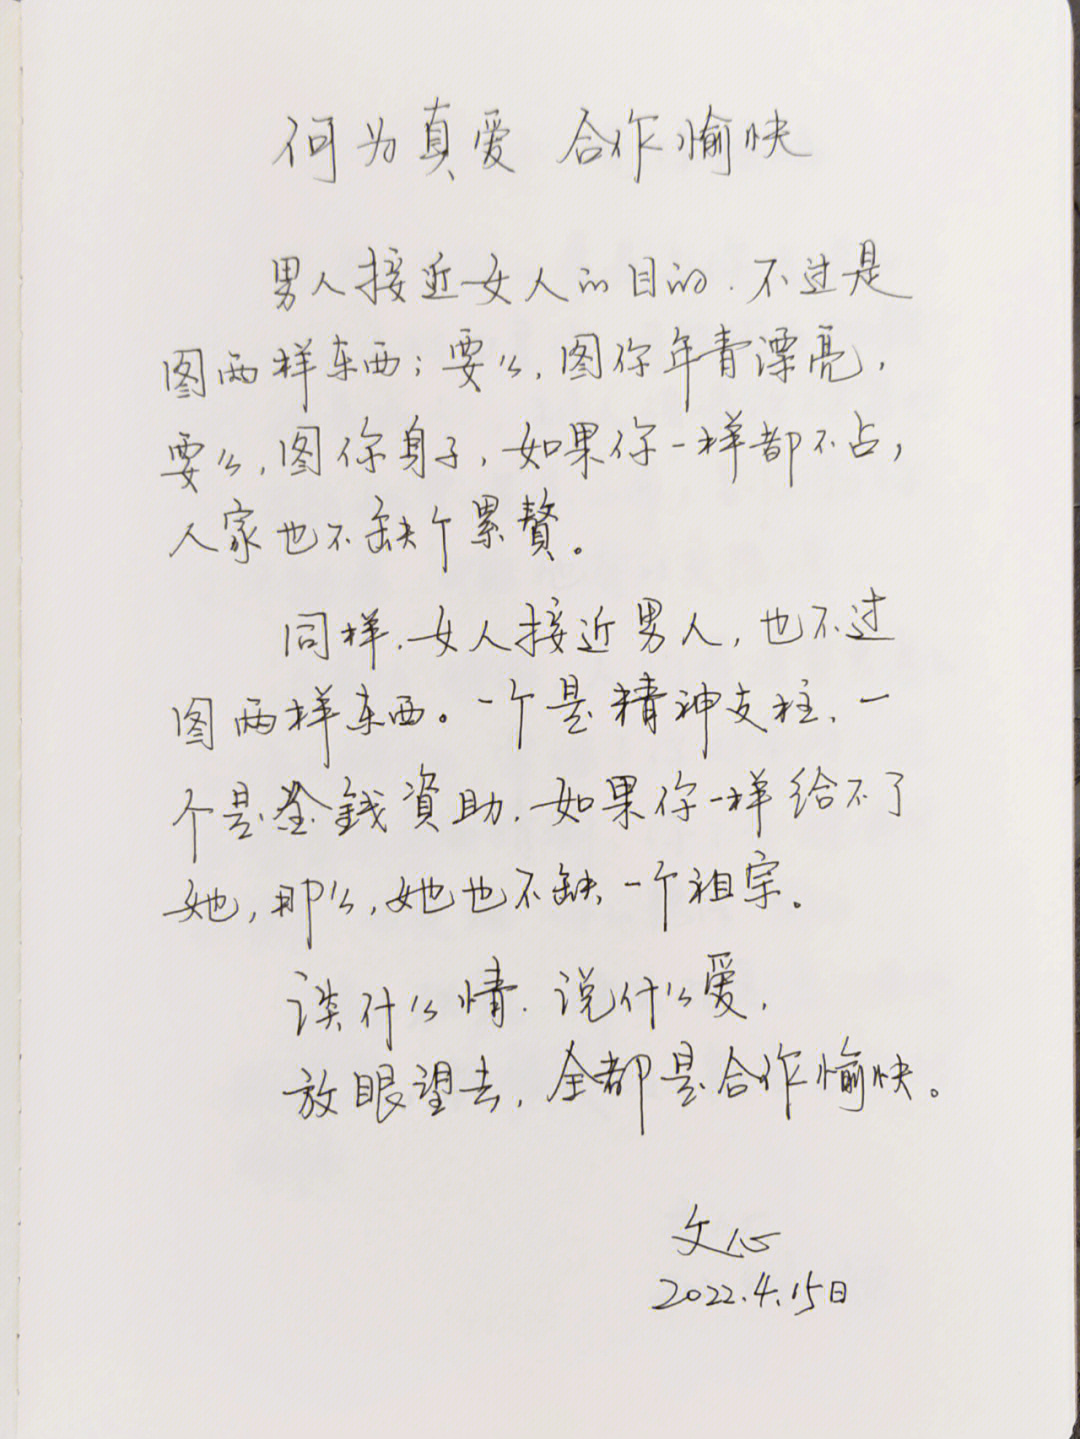 何为真爱 合作愉快
男人接近女人的目的.不过是
图两样东西；要么,图你年青漂亮,
要么,图你身子,如果你一样都不占,
人家也不缺个累赘。
同样.女人接近男人,也不过
图两样东西。一个是精神支柱、一
个是金錢資助.如果你一样给不了
她,那么,她也不缺一个祖宗.
谈什么情.说什么爱,
放眼望去,全都是合作愉快。
文心
2022.4.15日